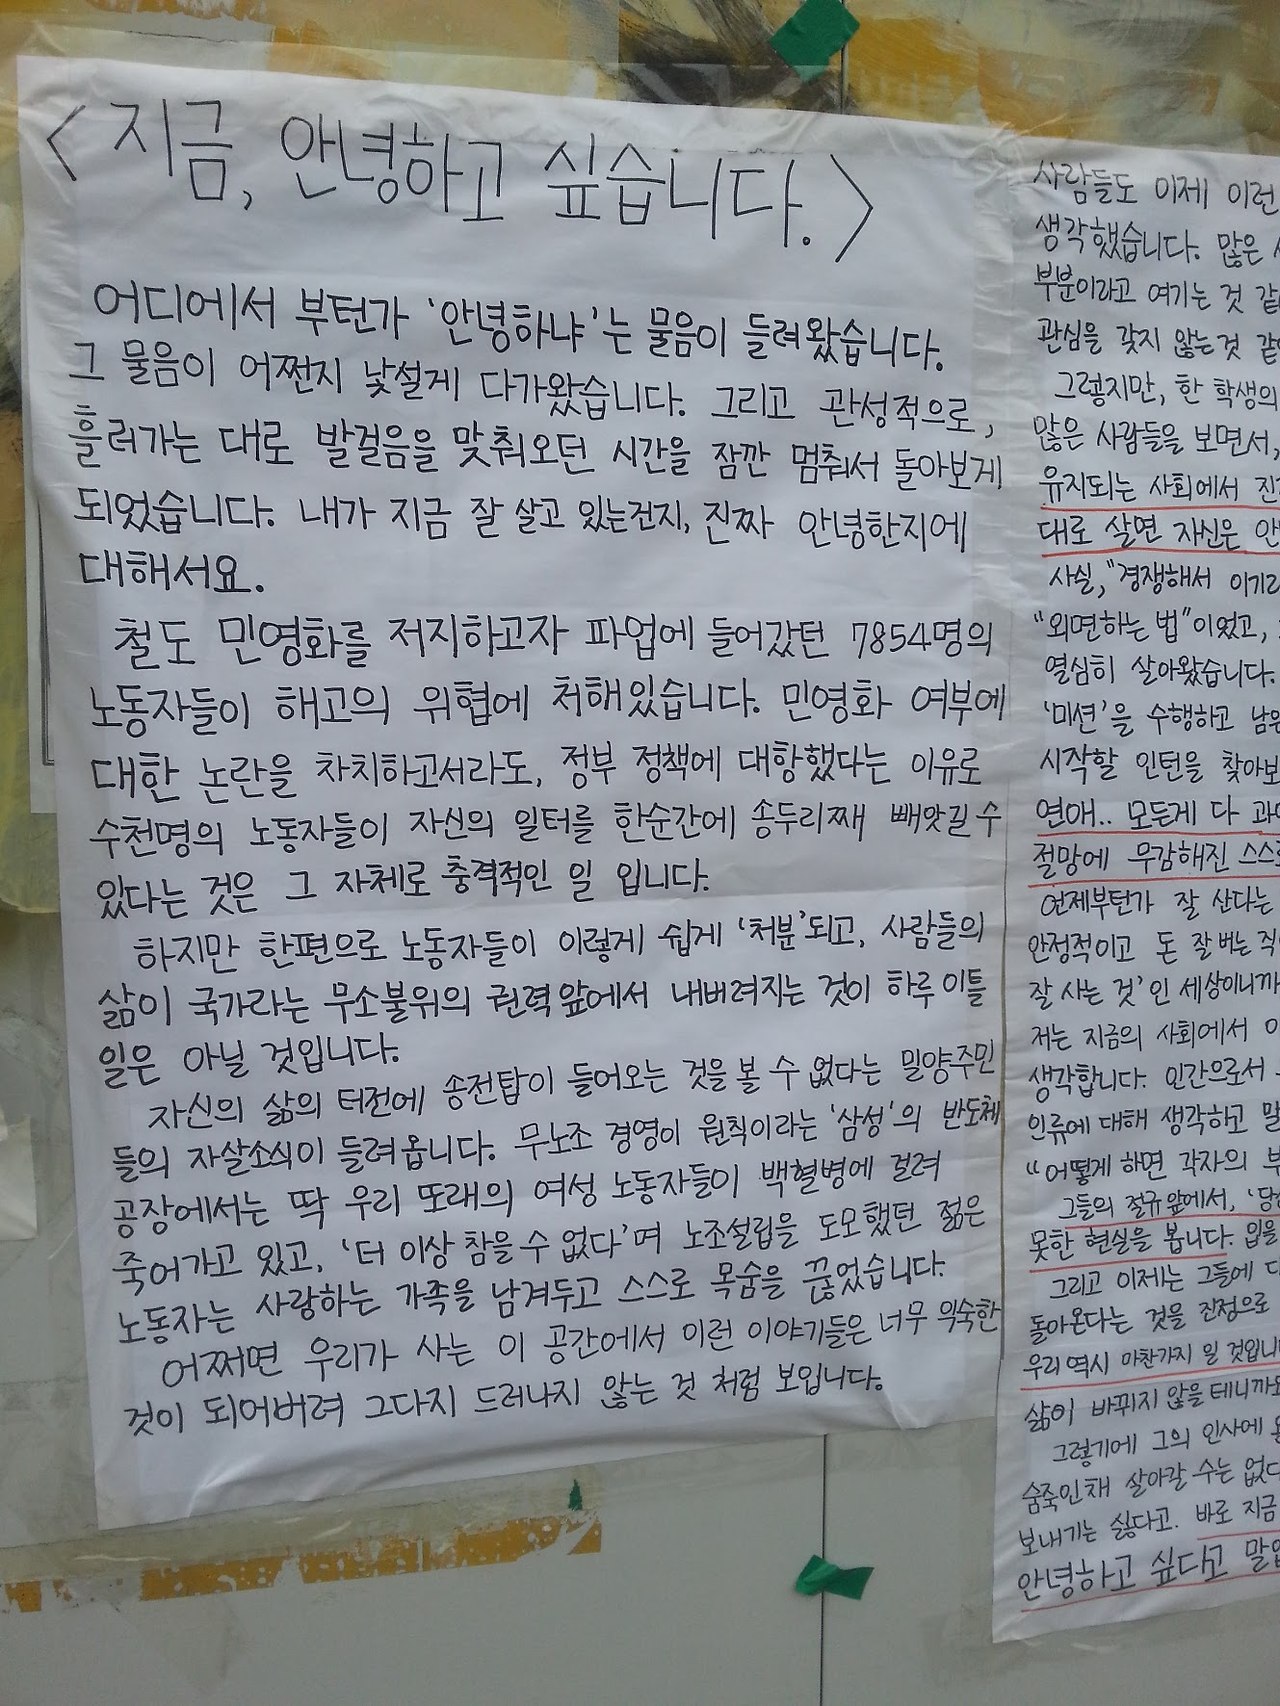 <지금, 안녕하고 싶습니다.>
어디에서 부턴가 '안녕하냐'는 물음이 들려왔습니다.
그 물음이 어쩐지 낯설게 다가왔습니다. 그리고 관성적으로,
흘러가는 대로 발걸음을 맞춰오던 시간을 잠깐 멈춰서 돌아보게
되었습니다. 내가 지금 잘 살고 있는건지, 진짜 안녕한지에
대해서요.
철도 민영화를 저지하고자 파업에 들어갔던 7854명의
노동자들이 해고의 위협에 처해있습니다. 민영화 여부에
대한 논란을 차치하고서라도, 정부 정책에 대항했다는 이유로
수천명의 노동자들이 자신의 일터를 한순간에 송두리째 빼앗길 수
있다는 것은 그 자체로 충격적인 일 입니다.
하지만 한편으로 노동자들이 이렇게 쉽게 '처분'되고, 사람들의
삶이 국가라는 무소불위의 권력앞에서 내버려지는 것이 하루 이틀
일은 아닐 것입니다.
자신의 삶의 터전에 송전탑이 들어오는 것을 볼 수 없다는 밀양주민
들의 자살소식이 들려옵니다. 무노조 경영이 원칙이라는 '삼성'의 반도체
공장에서는 딱 우리 또래의 여성 노동자들이 백혈병에 걸려
죽어가고 있고, '더 이상 참을 수 없다'며 노조설립을 도모했던 젊은
노동자는 사랑하는 가족을 남겨두고 스스로 목숨을 끊었습니다.
어쩌면 우리가 사는 이 공간에서 이런 이야기들은 너무 익숙한
것이 되어버려 그다지 드러나지 않는 것 처럼 보입니다.
사람들도 이제 이런
생각했습니다. 많은
부분이라고 여기는 것 같
관심을 갖지 않는 것 같
그렇지만, 한 학생의
많은 사람들을 보면서,
유지되는 사회에서
대로 살면 자신은
사실, "경쟁해서 이기
"외면하는 법"이었고,
열심히 살아왔습니다.
'미션'을 수행하고 남은
시작할 인턴을 찾아보
연애.. 모든게 다
절망에 무감해진 스스로
언제부턴가 잘 산다는
안정적이고 돈 잘 버는
잘 사는 것'인 세상이니까
저는 지금의 사회에서
생각합니다. 인간으로서
인류에 대해 생각하고
"어떻게 하면 각자의
그들의 절규앞에서,
못한 현실을 봅니다. 입을
그리고 이제는 그들에
돌아온다는 것을 진정으로
우리 역시 마찬가지 일 것입니
삶이 바뀌지 않을 테니까요
그렇기에 그의 인사에
숨죽인채 살아갈 수는 없다
보내기는 싫다고. 바로 지금
안녕하고 싶다고